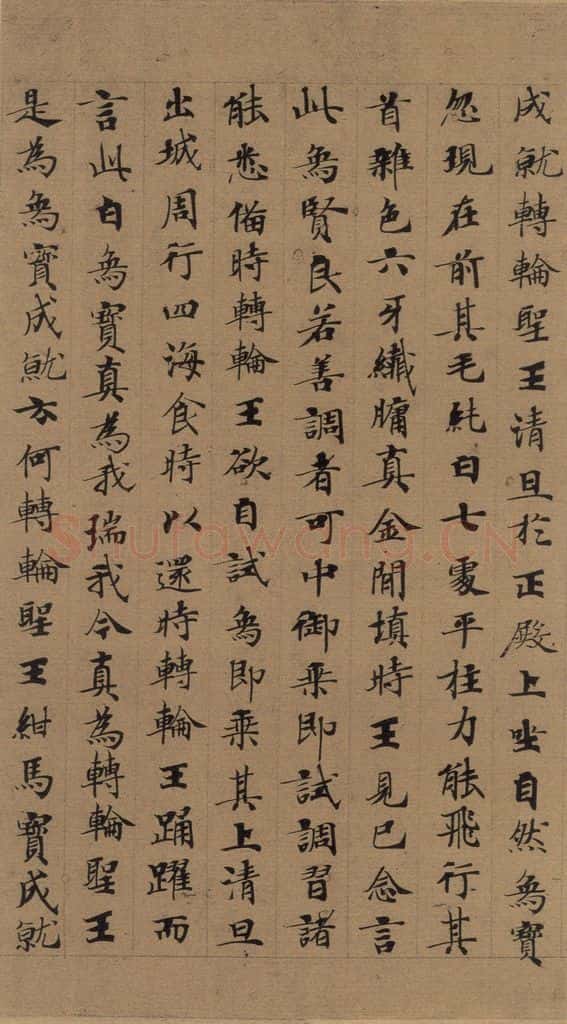 成就轉輪聖王清旦於正殿上坐自然象寶
忽現在前其毛純白七處平柱力能飛行其
首雜色六牙纖𦟛真金間填時王見已念言
此象賢良若善調者可中御乘即試調習諸
能悉備時轉輪王欲自試象即乘其上清旦
出城周行四海食時以還時轉輪王踊躍而
言此白象寶真為我瑞我今真為轉輪聖王
是為象寶成就云何轉輪聖王紺馬寶成就
Shufawang.CN